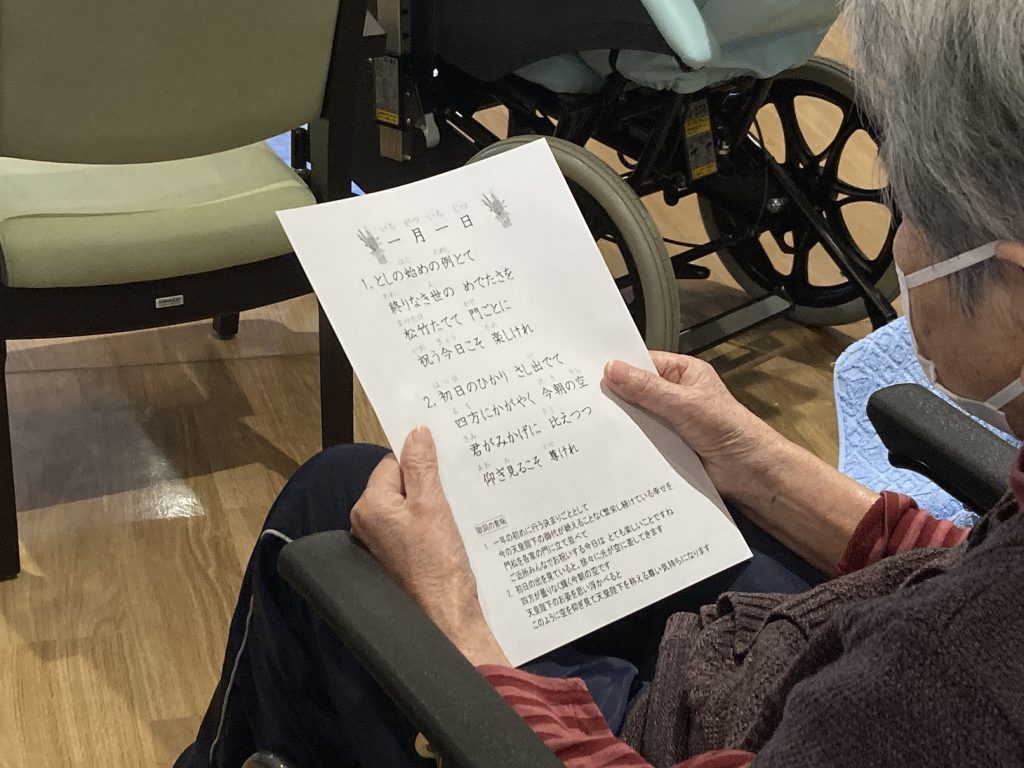 いち がつ いち じつ
一月一日
はじ ためし
1. としの始めの例とて
おわ よ
終りなき世の めでたさを
まつたけ かど
松竹たてて 門ごとに
いお きょう たの
祝う今日こそ 楽しけれ
はつひ い
2. 初日のひかり さし出でて
よも けさ そら
四方にかがやく 今朝の空
きみ たぐ
君がみかげに 比えつつ
あお み とう
仰ぎ見るこそ 尊けれ
歌詞の意味
1. 一年の初めに行う決まりごととして
今の天皇陛下の御代が絶えることなく繁栄し続けている幸せを
門松を各家の門に立て並べて
ご近所みんなでお祝いする今日は とても楽しいことですね
2. 初日の出を見ていると、徐々に光が空に差してきます
四方が曇りなく輝く今朝の空です
天皇陛下のお姿を思い浮かべると
このように空を仰ぎ見て天皇陛下を称える尊い気持ちになります